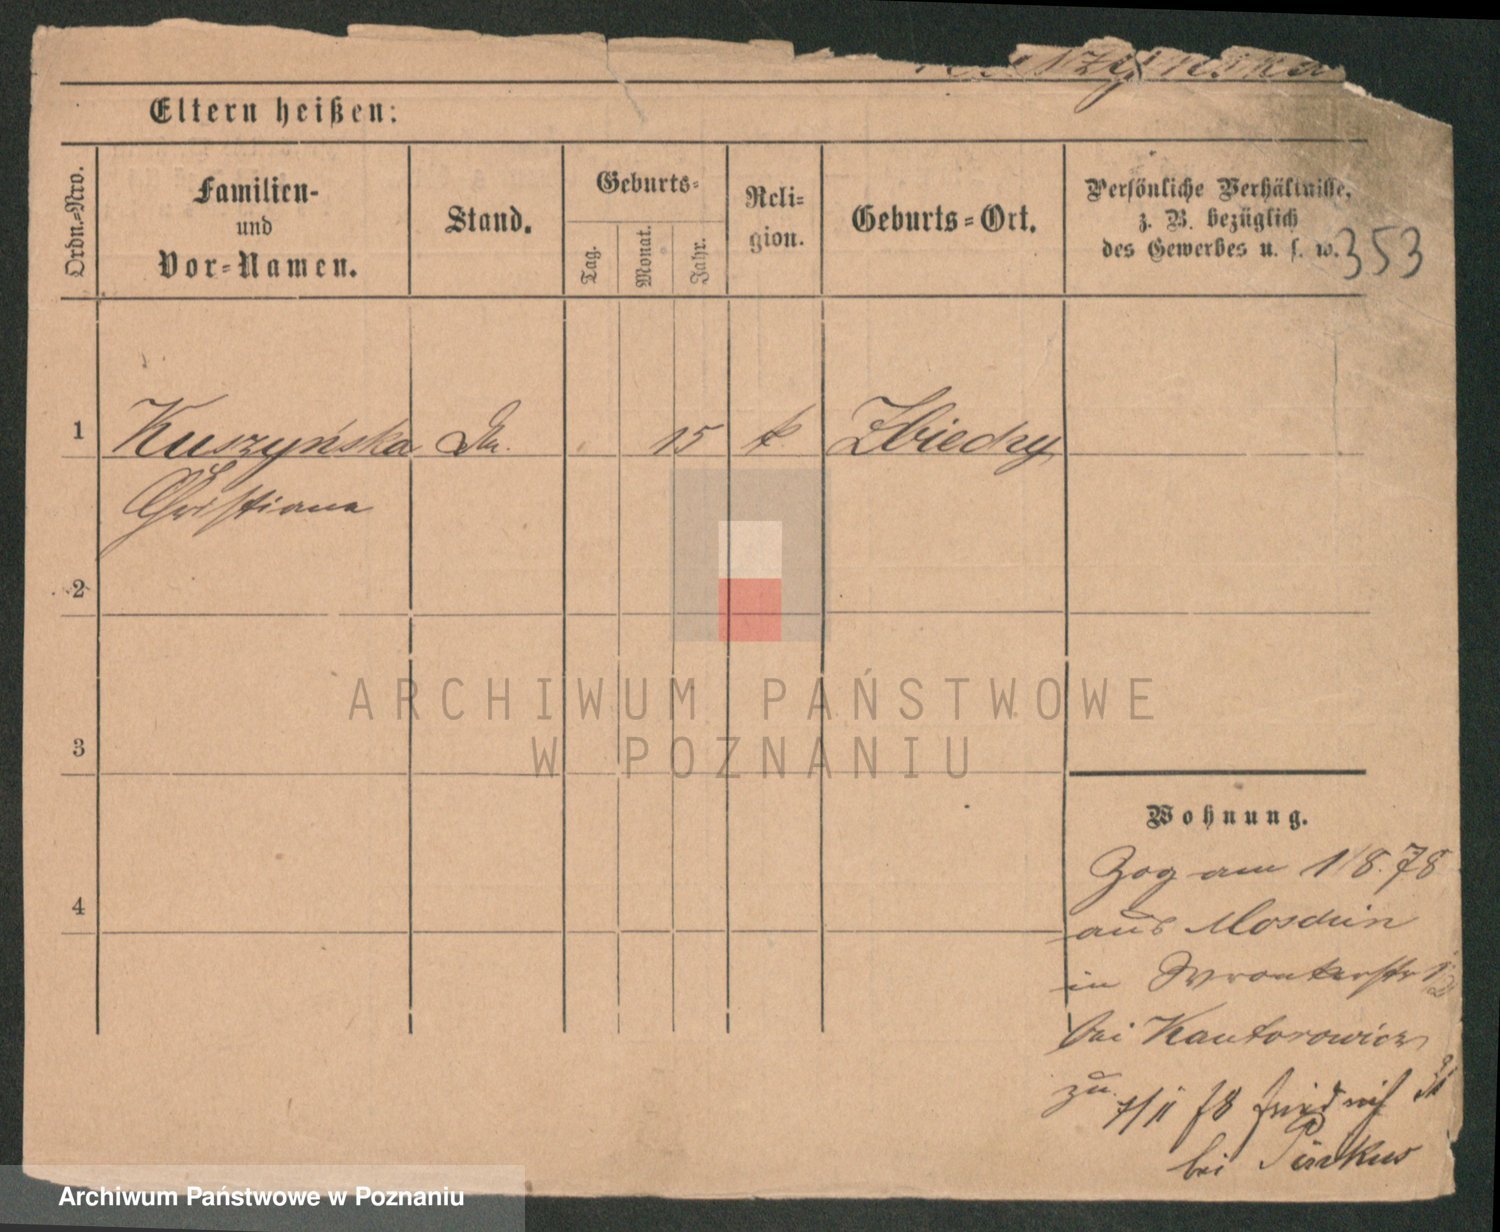 Eltern heißen:
Ordn.-Nro.
Familien-
und
Vor-Namen.
Stand.
Geburts-
Tag.
Monat.
Jahr.
Reli-
gion.
Geburts-Ort.
Persönliche Verhältnisse,
z. B. bezüglich
des Gewerbes u. s. w.
353
1
Kuszyńska
15
k
Christiana
2
3
4
Wohnung.
Zog am 1/8. 78
aus Moschin
in Wronkerstr
bei Kantorowicz
zu.
7/11 78 Friedrich 31
bei Pinkus
ARCHIWUM PAŃSTWOWE
W POZNANIU
Archiwum Państwowe w Poznaniu